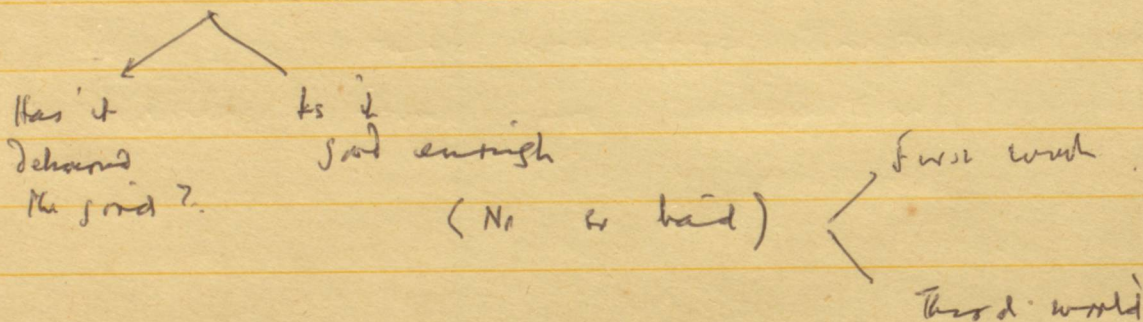 Has it
delivered
the goods?
Is it
good enough
(No so bad)
First world
Third world